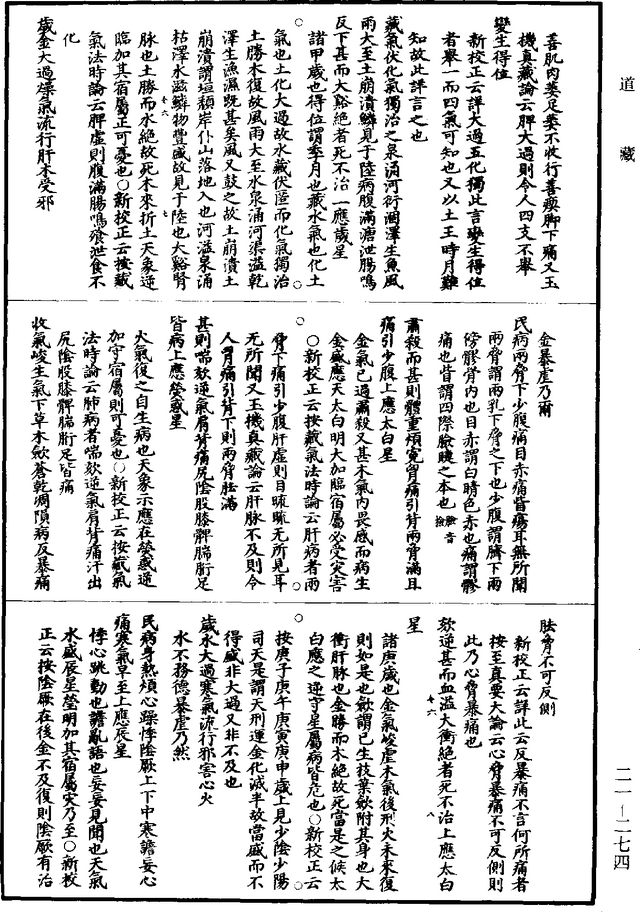 道藏
善肌肉萎足萎不收行善瘈脚下痛又玉
機真藏論云脾大過則令人四支不舉
變生得位
新校正云詳大過五化獨此言變生得位
者舉一而四氣可知也又以土王時月難
知故此詳言之也
藏氣伏化氣獨治之泉涌河衍涸澤生魚風
雨大至土崩潰鱗見于陸病腹滿溏泄腸鳴
反下甚而大谿絕者死不治一應歲星
諸甲歲也得位謂季月也藏水氣也化土
氣也土化大過故水藏伏匿而化氣獨治
土勝木復故風雨大至水泉涌河渠溢乾
澤生漁濕既甚矣風又鼓之故土崩潰土
崩潰謂垣頹岸仆山落地入也河溢泉涌
枯澤水滋鱗物豐盛故見于陸也大谿腎
脉也土勝而水絕故死木來折土天象逆
臨加其宿屬正可憂也○新校正云按藏
氣法時論云脾虛則腹滿腸鳴飱泄食不
化
歲金大過燥氣流行肝木受邪
金暴虐乃爾
民病兩脅下少腹痛目赤痛眥瘍耳無所聞
兩脅謂兩乳下脅之下也少腹謂臍下兩
傍髎骨內也目赤謂白睛色赤也痛謂髎
痛也眥謂四際瞼睫之本也
肅殺而甚則體重煩冤胷痛引背兩脅滿且
痛引少腹上應太白星
金氣已過肅殺又甚木氣內畏感而病生
金盛應天太白明大加臨宿屬必受灾害
○新校正云按藏氣法時論云肝病者兩
脅下痛引少腹肝虛則目𥆨𥆨無所見耳
無所聞又玉機真藏論云肝脉不及則令
人胷痛引背下則兩脅胠滿
甚則喘欬逆氣肩背痛尻陰股膝髀腨䯒足
皆病上應熒惑星
火氣復之自生病也天象示應在熒惑逆
加守宿屬則可憂也○新校正云按藏氣
法時論云肺病者喘欬逆氣肩背痛汗出
尻陰股膝髀腨䯒足皆痛
收氣峻生氣下草木歛蒼乾凋隕病反暴痛
胠脅不可反側
新校正云詳此云反暴痛不言何所痛者
按至真要大論云心脅暴痛不可反側則
此乃心脅暴痛也
欬逆甚而血溢太衝絕者死不治上應太白
星
諸庚歲也金氣峻虐木氣後刑火未來復
則如是也歛謂已生枝葉歛附其身也大
衝肝脉也金勝而木絕故死當是之候太
白應之逆守星屬病皆危也○新校正云
按庚子庚午庚寅庚申歲上見少陰少陽
司天是謂天刑運金化減半故當盛而不
得盛非大過又非不及也
歲水大過寒氣流行邪害心火
水不務德暴虐乃然
民病身熱煩心躁悸陰厥上下中寒譫妄心
痛寒氣早至上應辰星
悸心跳動也譫亂語也妄妄見聞也天氣
水盛辰星瑩明加其宿屬灾乃至○新校
正云按陰厥在後金不及復則陰厥有治
二一—二七四